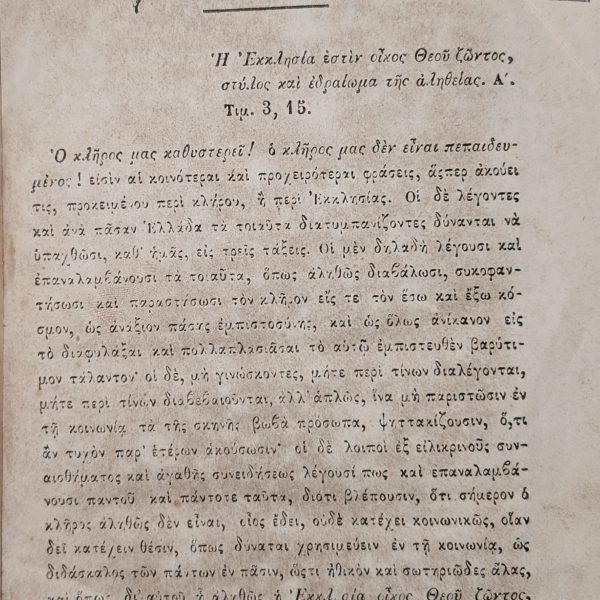 Ἡ Ἐκκλησία ἐστὶν οἶκος Θεοῦ ζῶντος,
στύλος καὶ ἑδραίωμα τῆς ἀληθείας. Α΄.
Τιμ. 3, 15.
Ὁ κλῆρος μας καθυστερεῖ! ὁ κλῆρος μας δὲν εἶναι πεπαιδευ-
μένος! εἰσὶν αἱ κοινότεραι καὶ προχειρότεραι φράσεις, ἅςπερ ἀκούει
τις, προκειμένου περὶ κλήρου, ἢ περὶ Ἐκκλησίας. Οἱ δὲ λέγοντες
καὶ ἀνὰ πᾶσαν Ἑλλάδα τὰ τοιαῦτα διατυμπανίζοντες δύνανται νὰ
ὑπαχθῶσι, καθ' ἡμᾶς, εἰς τρεῖς τάξεις. Οἱ μὲν δηλαδὴ λέγουσι καὶ
ἐπαναλαμβάνουσι τὰ τοιαῦτα, ὅπως ἀληθῶς διαβάλωσι, συκοφαν-
τήσωσι καὶ παραστήσωσι τὸν κλῆρον εἴς τε τὸν ἔσω καὶ ἔξω κό-
σμον, ὡς ἀνάξιον πάσης ἐμπιστοσύνης, καὶ ὡς ὅλως ἀνίκανον εἰς
τὸ διαφυλάξαι καὶ πολλαπλασιᾶσαι τὸ αὐτῷ ἐμπιστευθὲν βαρύτι-
μον τάλαντον· οἱ δὲ, μὴ γινώσκοντες, μήτε περὶ τίνων διαλέγονται,
μήτε περὶ τίνων διαβεβαιοῦνται, ἀλλ' ἁπλῶς, ἵνα μὴ παριστῶσιν ἐν
τῇ κοινωνίᾳ τὰ τῆς σκηνῆς βωβὰ πρόσωπα, ψηττακίζουσιν, ὅ,τι
ἂν τυχὸν παρ' ἑτέρων ἀκούσωσιν· οἱ δὲ λοιποὶ ἐξ εἰλικρινοῦς συν-
αισθήματος καὶ ἀγαθῆς συνειδήσεως λέγουσί πως καὶ ἐπαναλαμβά-
νουσι πανταχοῦ καὶ πάντοτε ταῦτα, διότι βλέπουσιν, ὅτι σήμερον ὁ
κλῆρος ἀληθῶς δὲν εἶναι, οἷος ἔδει, οὐδὲ κατέχει κοινωνικῶς, οἵαν
δεῖ κατέχειν θέσιν, ὅπως δύναται χρησιμεύειν ἐν τῇ κοινωνίᾳ, ὡς
διδάσκαλος τῶν πάντων ἐν πᾶσιν, ὥςτι ἠθικὸν καὶ σωτηριῶδες ἅλας,
καὶ ὅπως δι' αὐτοῦ ᾖ ἀληθῶς ἡ Ἐκκλησία οἶκος Θεοῦ ζῶντος,